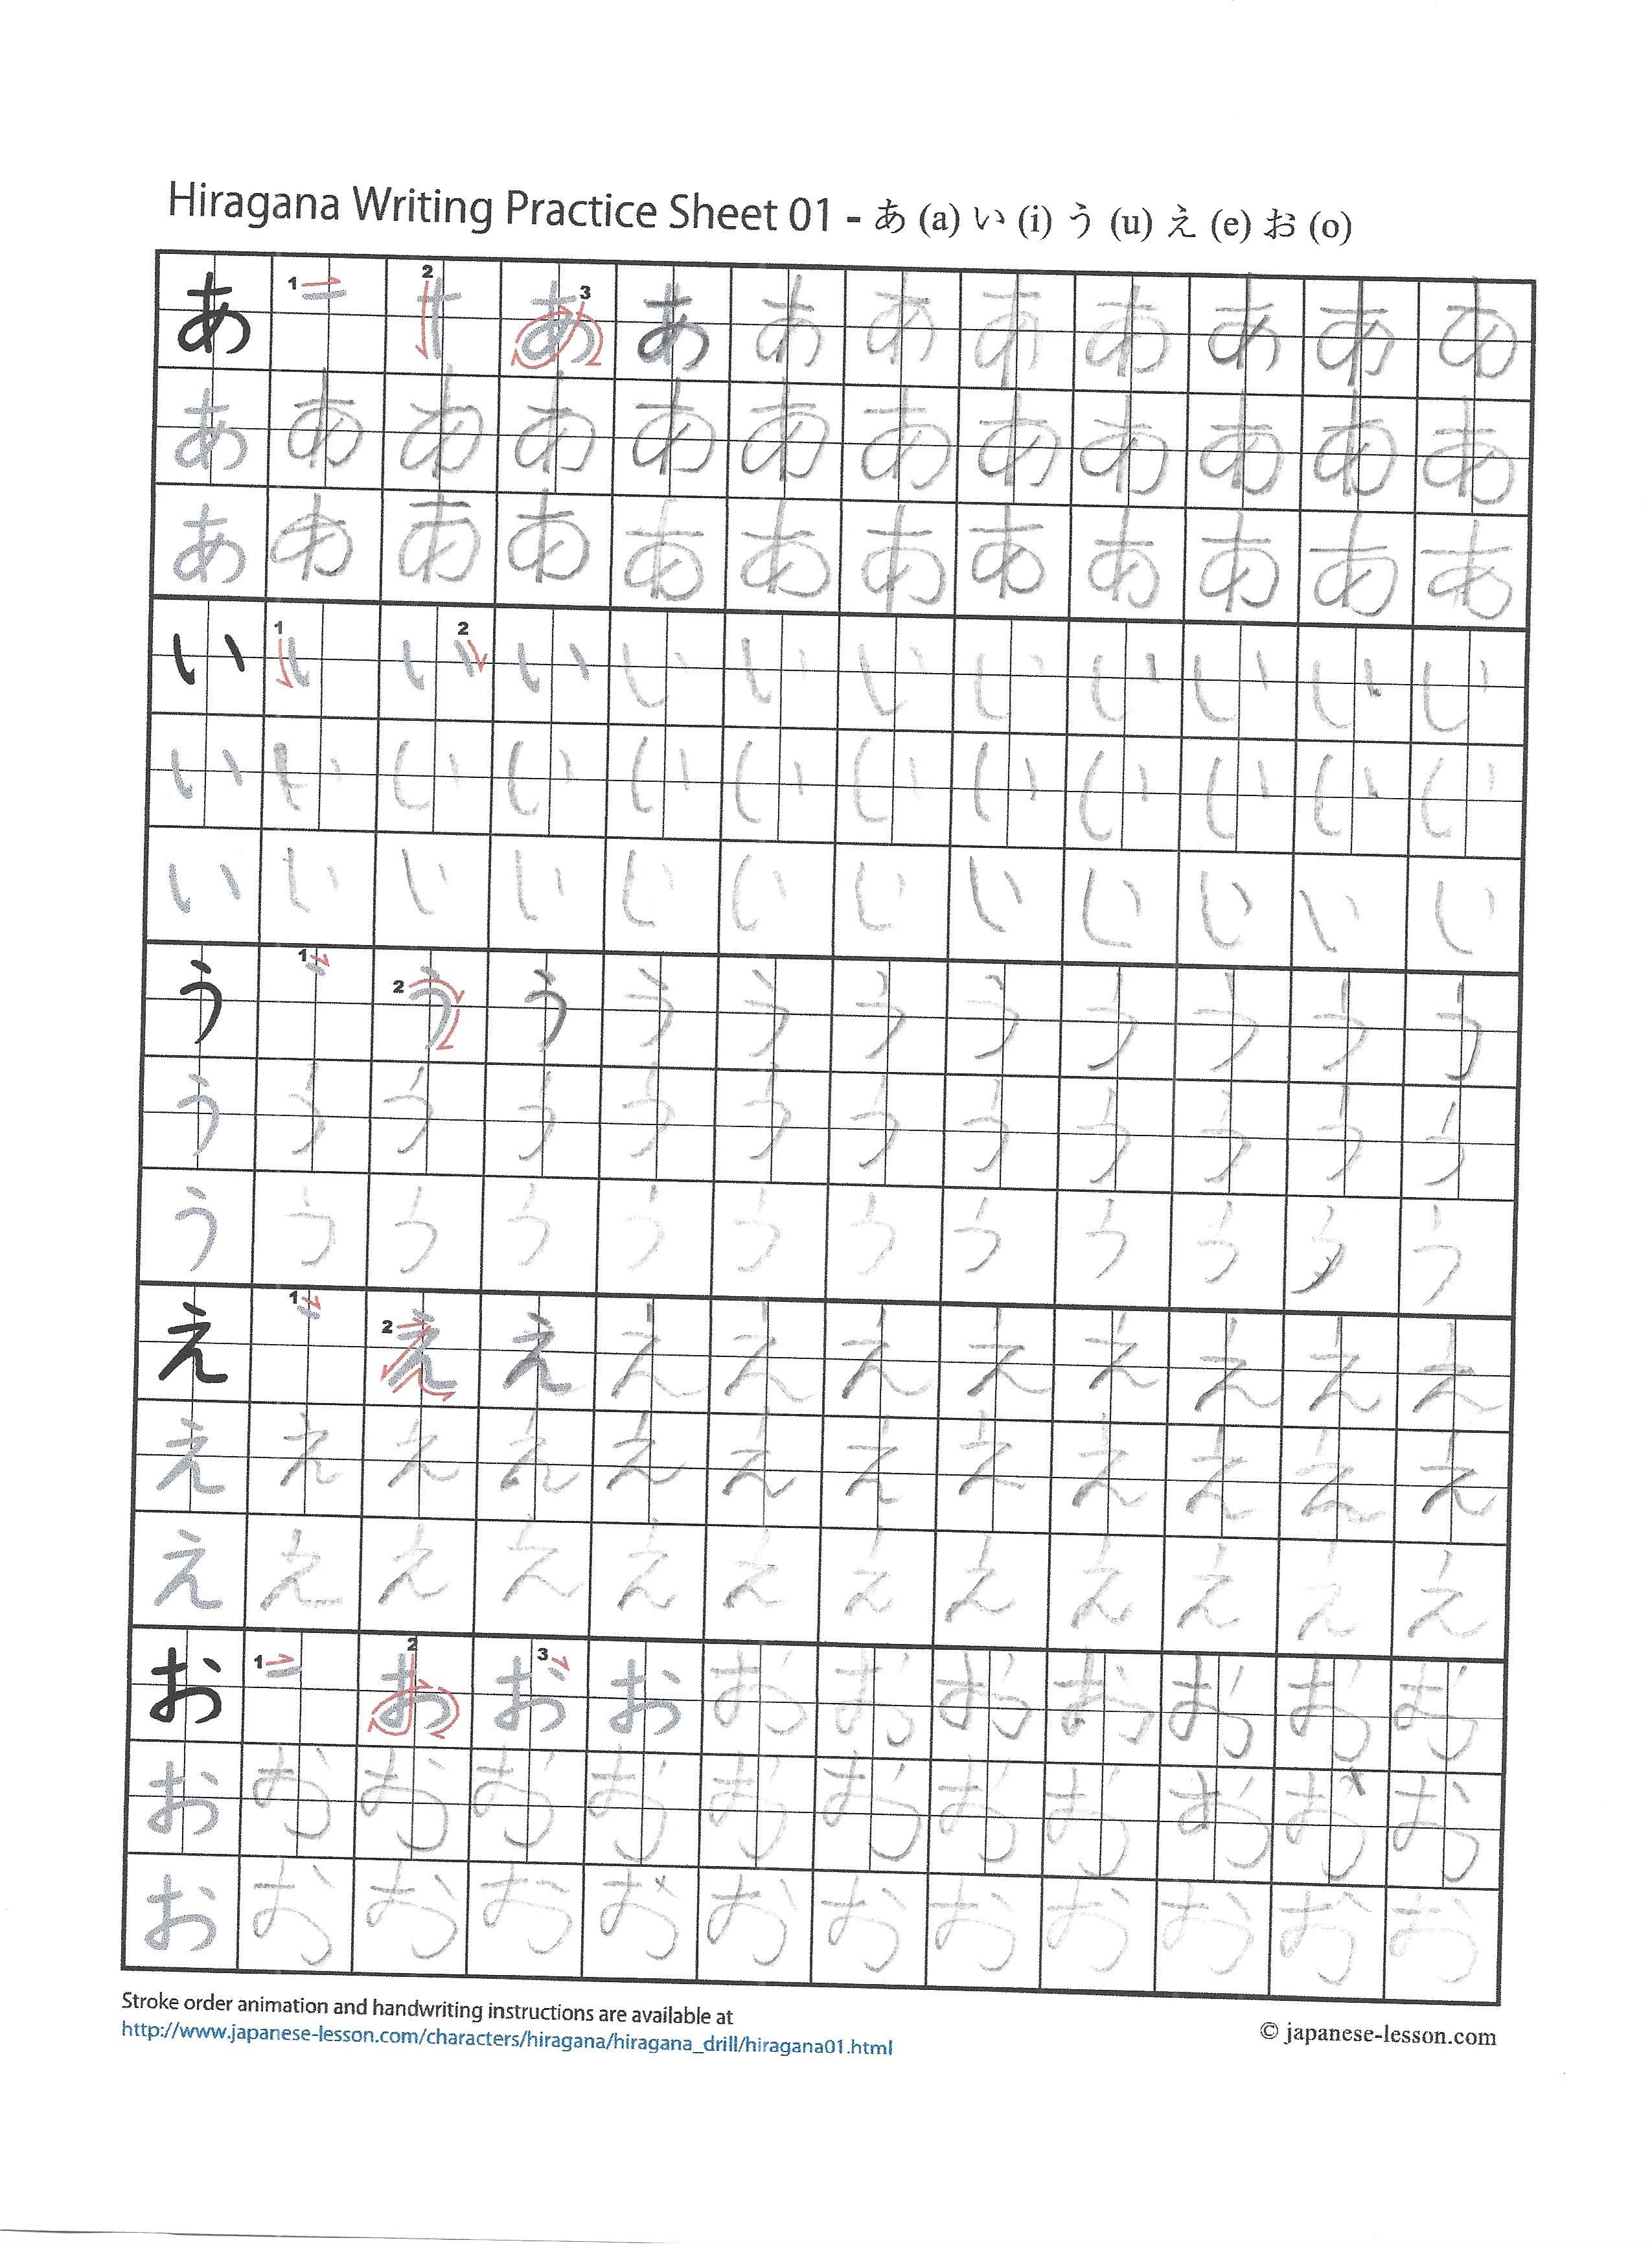 Hiragana Writing Practice Sheet 01 - あ (a) い (i) う (u) え (e) お (o)
あ 1 2 あ 3 あ あ あ あ あ あ あ あ
あ あ あ あ あ あ あ あ あ あ あ あ
あ あ あ あ あ あ あ あ あ あ あ あ
い 1 い 2 い い い い い い い い い
い い い い い い い い い い い い
い い い い い い い い い い い い
う 1 2 う う う う う う う う う う
う う う う う う う う う う う う
う う う う う う う う う う う う
え 1 2 え え え え え え え え え え
え え え え え え え え え え え え
え え え え え え え え え え え え
お 1 2 お お 3 お お お お お お お お
お お お お お お お お お お お お
お お お お お お お お お お お お
Stroke order animation and handwriting instructions are available at
http://www.japanese-lesson.com/characters/hiragana/hiragana_drill/hiragana01.html
© japanese-lesson.com